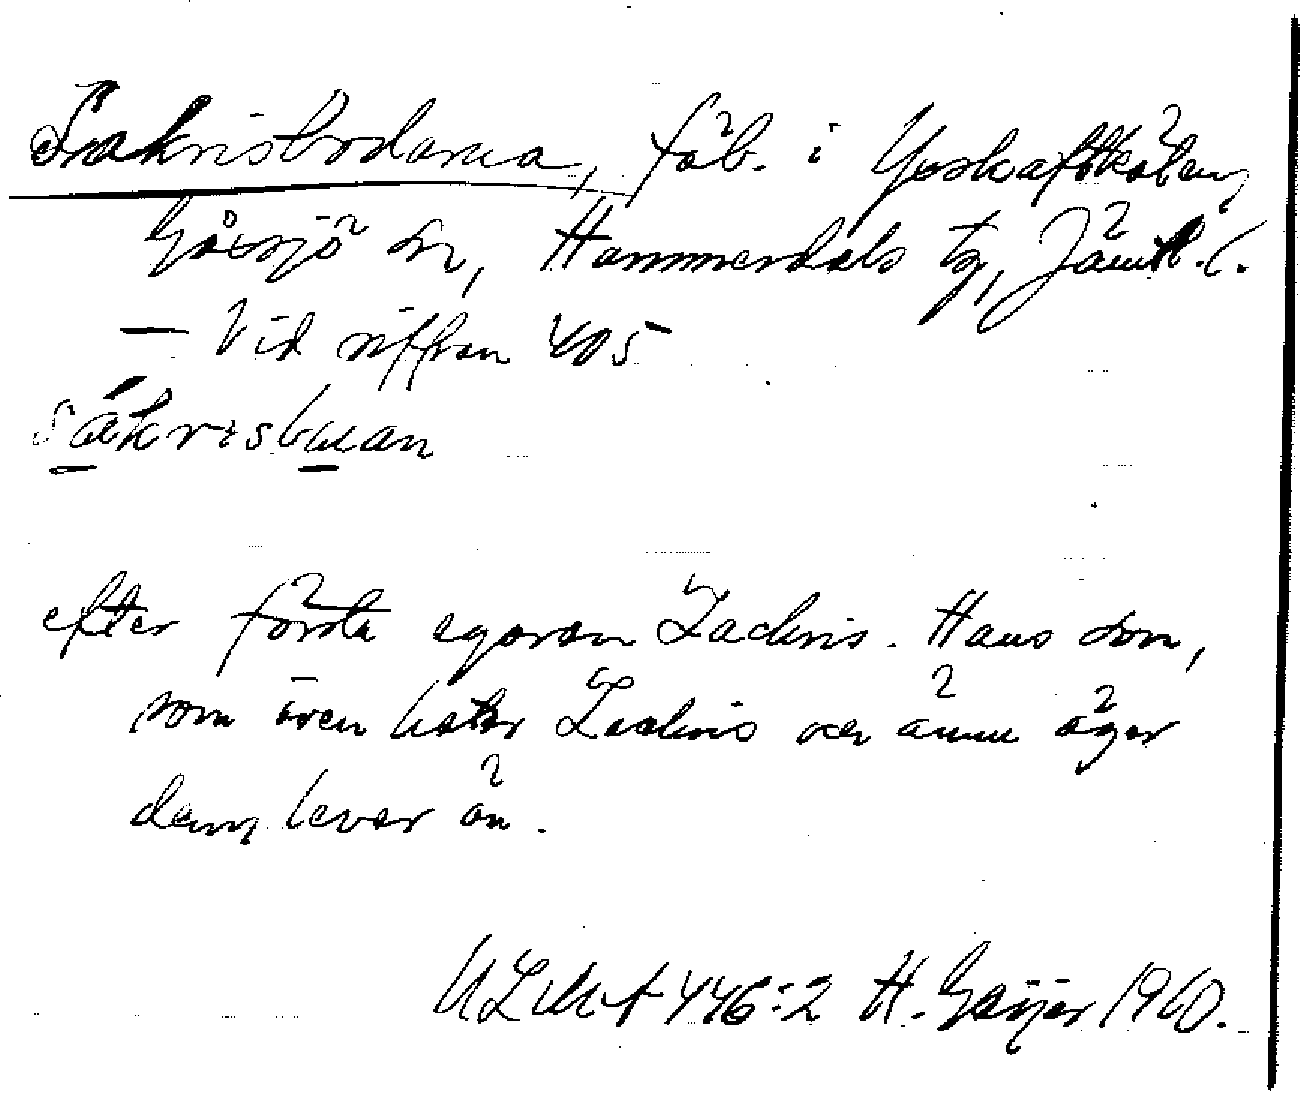 Sakrisbodarna, fäb. i Yxskaftkälen,
Gåxsjö sn, Hammerdals tg, Jämtl. l.
— Vid siffran 405
säkrisbuan
efter första egaren Zackris. Hans son,
som även heter Zackris och ännu äger
dem, lever än.
ULMA 446:2 H. Geijer 1960.